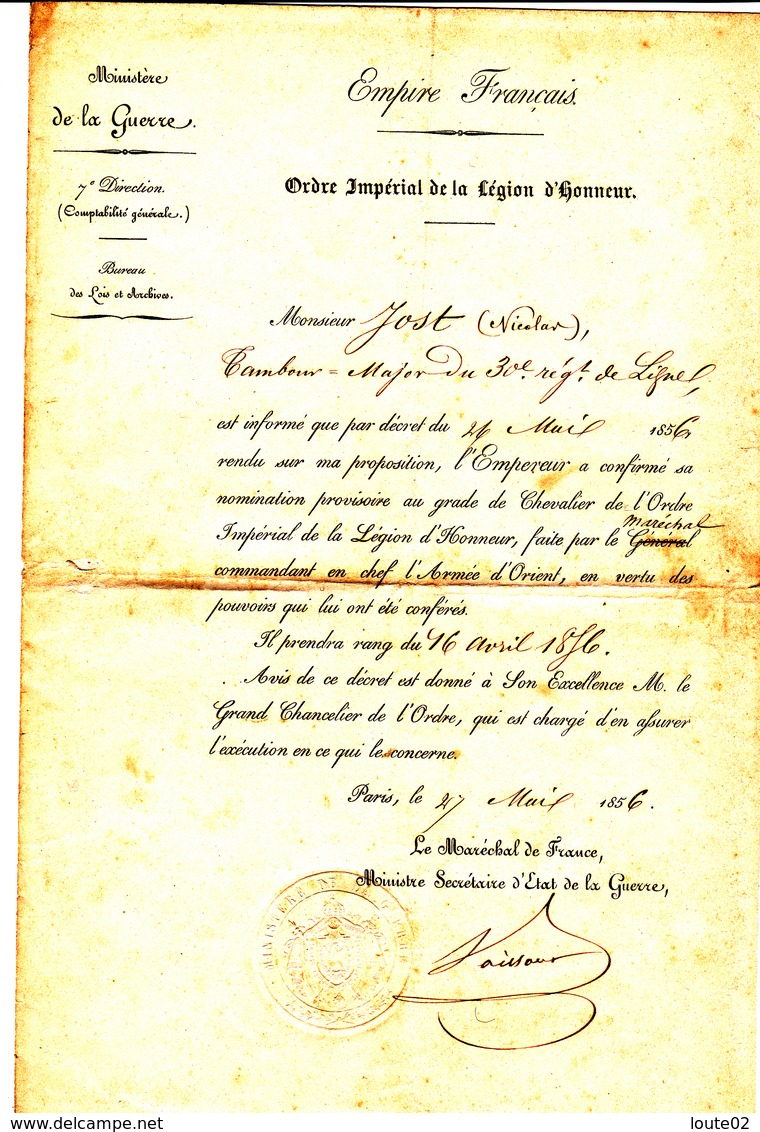 Ministère
de la Guerre.
7e Direction.
(Comptabilité générale.)
Bureau
des Lois et Archives.
Empire Français.
Ordre Impérial de la Légion d'Honneur.
Monsieur Jost (Nicolas),
Tambour = Major du 30e régt. de Ligne,
est informé que par décret du 26 Mai 1856
rendu sur ma proposition, l'Empereur a confirmé sa
nomination provisoire au grade de Chevalier de l'Ordre
maréchal
Impérial de la Légion d'Honneur, faite par le Général
commandant en chef l'Armée d'Orient, en vertu des
pouvoirs qui lui ont été conférés.
Il prendra rang du 16 avril 1856.
Avis de ce décret est donné à Son Excellence M. le
Grand Chancelier de l'Ordre, qui est chargé d'en assurer
l'exécution en ce qui le concerne.
Paris, le 27 Mai 1856.
Le Maréchal de France,
Ministre Secrétaire d'Etat de la Guerre,
Vaillant
MINISTERE DE LA GUERRE
www.delcampe.net
loute02